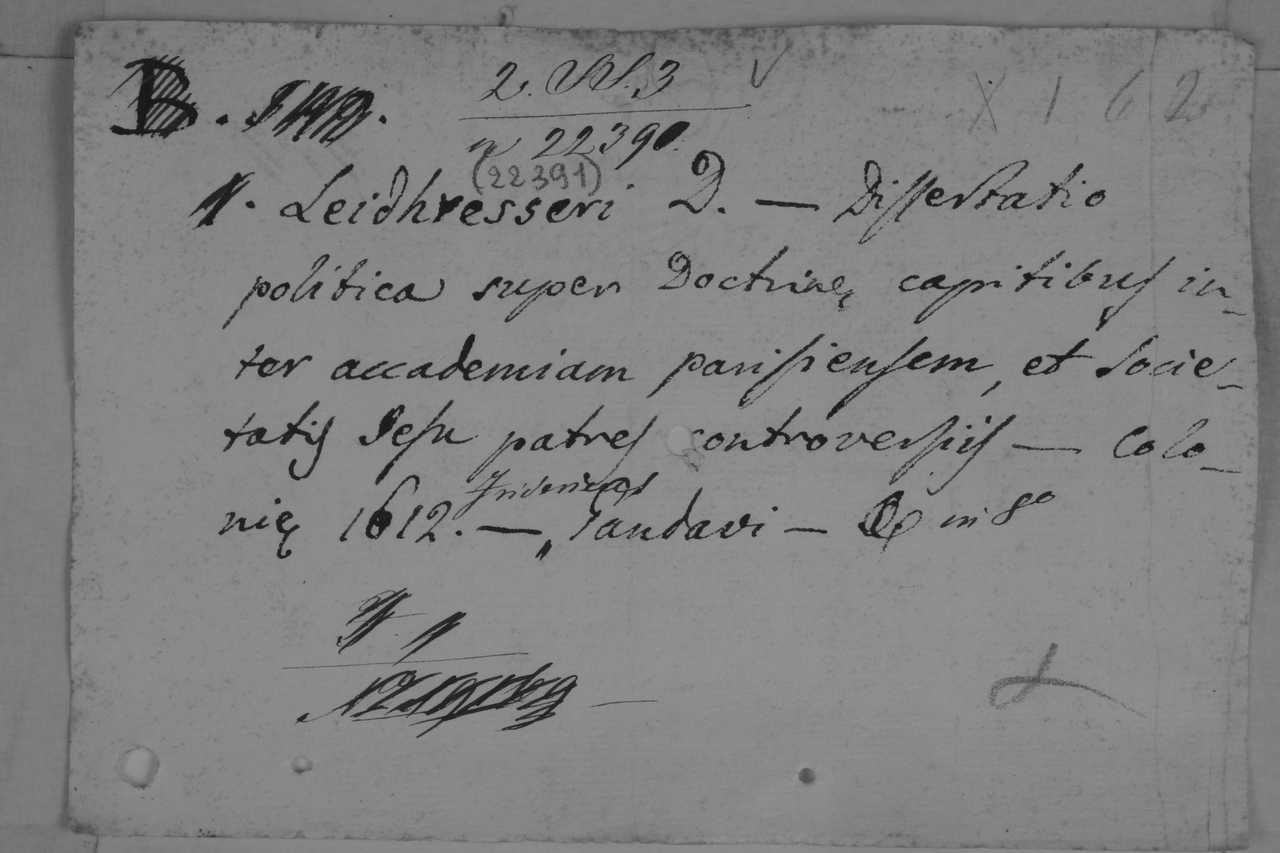 B.
2. 3 X 162
n 22390.
(22391)
Leidhresseri D. — Dissertatio
politica super Doctrinę capitibus in-
ter accademiam parisiensem, et Socie-
tatis Jesu patres controversiis — Colo-
nię 1612. — „ Tandavi — in 8°